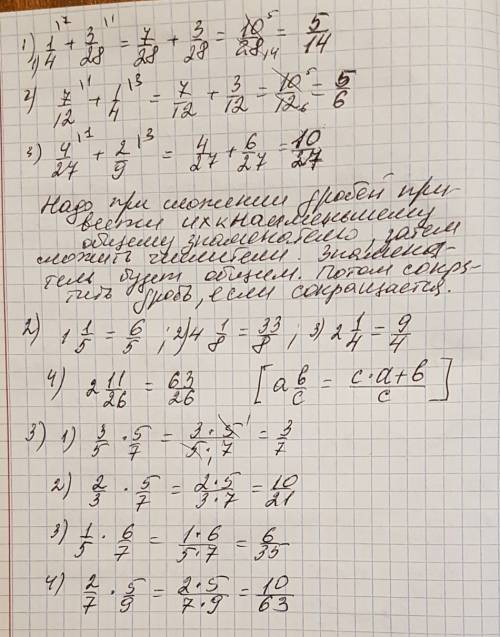 1) 1) 1/4 |7 + 3/28 |1 = 7/28 + 3/28 = 10 5/28 14 = 5/14
2) 7/12 |1 + 1/4 |3 = 7/12 + 3/12 = 10 5/12 6 = 5/6
3) 4/27 |1 + 2/9 |3 = 4/27 + 6/27 = 10/27
Надо при сложении дробей при-
вести их к наименьшему
общему знаменателю, затем
сложить числители. Знамена-
тель будет общим. Потом сокра-
тить дробь, если сокращается.
2) 1 1/5 = 6/5 ; 2) 4 1/8 = 33/8 ; 3) 2 1/4 = 9/4
4) 2 11/26 = 63/26 [a b/c = c·a+b/c]
3) 1) 3/5 · 5/7 = 3·5 1/5 1·7 = 3/7
2) 2/3 · 5/7 = 2·5/3·7 = 10/21
3) 1/5 · 6/7 = 1·6/5·7 = 6/35
4) 2/7 · 5/9 = 2·5/7·9 = 10/63